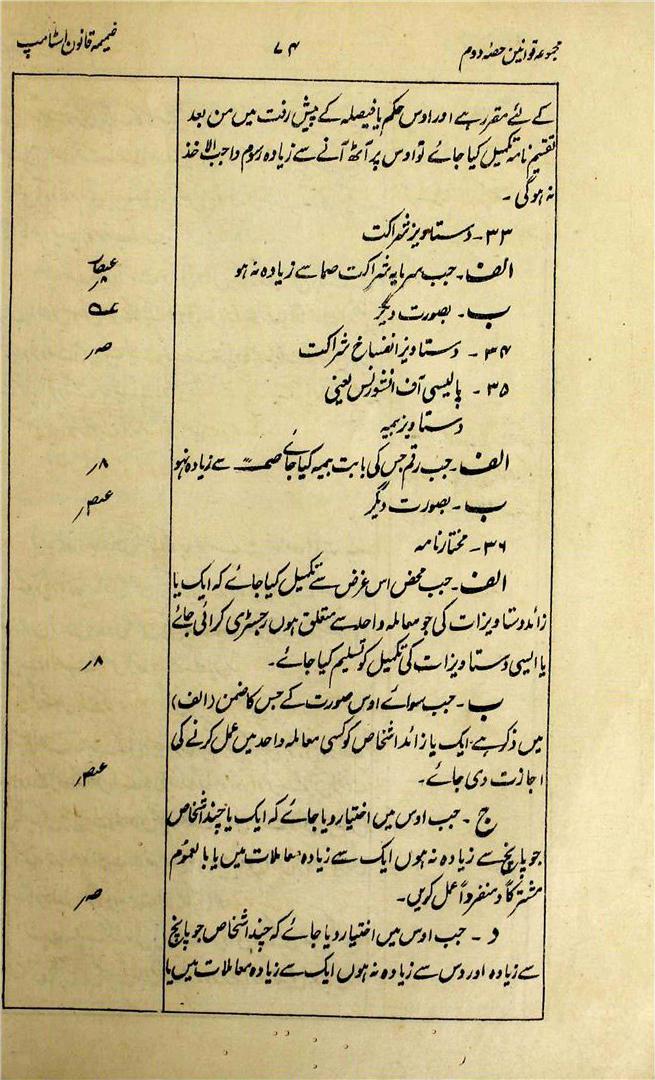 مجموعہ قوانین حصہ دوم
۷۴
ضمیمہ قانون اسٹامپ
کے لئے مقرر ہے اور اوس حکم یا فیصلہ کے پیش رفت میں من بعد
تقسیم نامہ تکمیل کیا جائے تو اوس پر آٹھ آنے سے زیادہ رسوم واجب الاخذ
نہ ہوگی ۔
۳۳ ۔ دستاویز شراکت
الف ۔ جب سرمایہ شراکت سے زیادہ نہ ہو
ب ۔ بصورت دیگر
۳۴ ۔ دستاویز انفساخ شراکت
۳۵ ۔ پالیسی آف انشورنس یعنی
دستاویز بیمہ
الف ۔ جب رقم جس کی بابت بیمہ کیا جائے سے زیادہ نہو ۸ر
ب ۔ بصورت دیگر
۳۶ ۔ مختار نامہ
الف ۔ جب محض اس غرض سے تکمیل کیا جائے کہ ایک یا
زائد دستاویزات کی جو معاملہ واحد سے متعلق ہوں رجسٹری کرائی جائے
یا ایسی دستاویزات کی تکمیل کو تسلیم کیا جائے ۔ ۸ر
ب ۔ جب سوائے اوس صورت کے جس کا ضمن (الف)
میں ذکر ہے ایک یا زائد اشخاص کو کسی معاملہ واحد میں عمل کرنے کی
اجازت دی جائے ۔
ج ۔ جب اوس میں اختیار دیا جائے کہ ایک یا چند اشخاص
جو پانچ سے زیادہ نہ ہوں ایک سے زیادہ معاملات میں یا بالعموم
مشترکاً و منفرداً عمل کریں ۔
د ۔ جب اوس میں اختیار دیا جائے کہ چند اشخاص جو پانچ
سے زیادہ اور دس سے زیادہ نہ ہوں ایک سے زیادہ معاملات میں یا